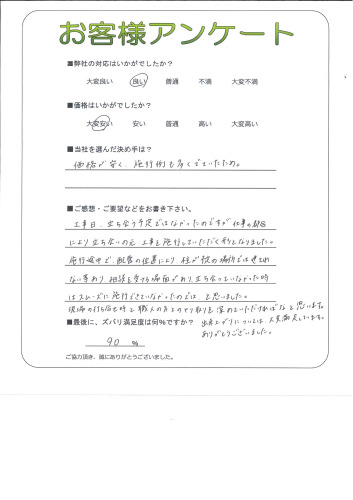 お客様アンケート
■弊社の対応はいかがでしたか?
大変良い 良い 普通 不満 大変不満
■価格はいかがでしたか?
大変安い 安い 普通 高い 大変高い
■当社を選んだ決め手は?
価格が安く、施行例も多くでていたため。
■ご感想・ご要望などをお書き下さい。
工事日、立ち会う予定ではなかったのですが仕事の都合
により立ち会いの元、工事を施行していただく形となりました。
施行途中で、配管の位置により、柱が 場所では
ない等あり、相談を受ける場面があり、立ち会っていなかった時
はスムーズに施行できていなかったのでは、と思いました。
現場の打ち合せ時と職人の方とのやり取りを深めていただければなと思います。
■最後に、ズバリ満足度は何%ですか?
出来上がりについては、大変満足しています。
ありがとうございました。
90 %
ご協力頂き、誠にありがとうございました。